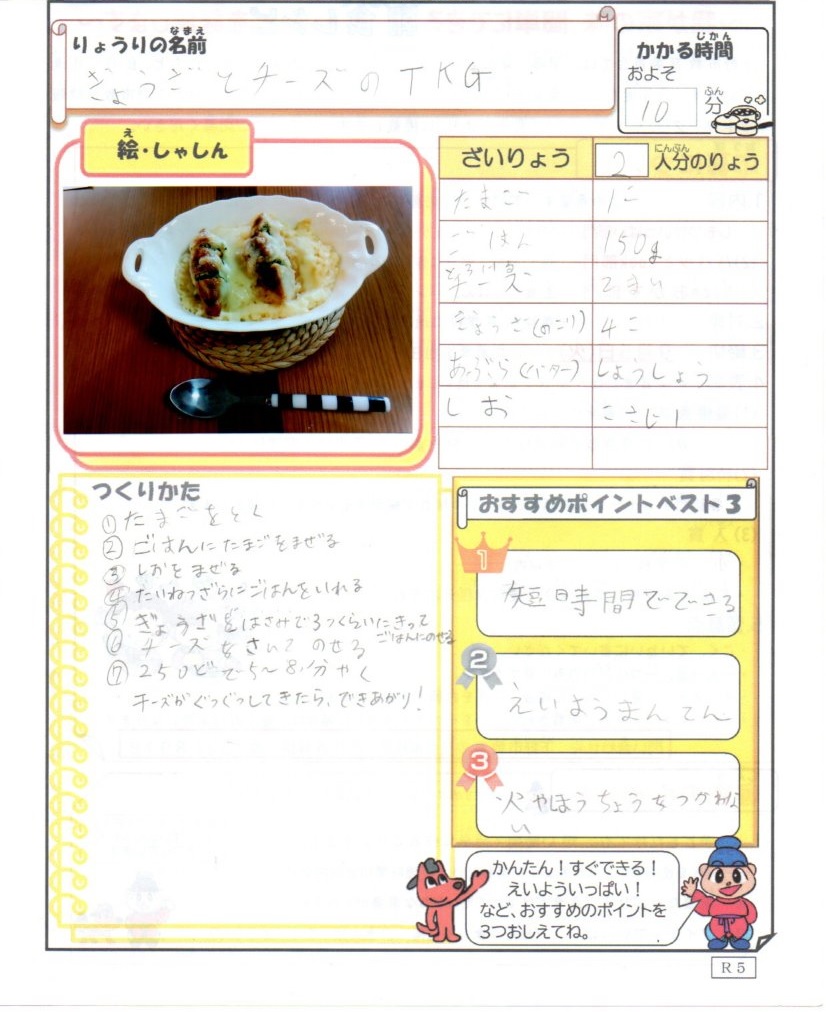 りょうりの名前
なまえ
ぎょうざとチーズのTKG
かかる時間
じかん
およそ
10分
ふん
絵・しゃしん
え
ざいりょう 2人分のりょう
にんぶん
たまご 1こ
ごはん 150g
とろける
チーズ 2まい
ぎょうざ(のこり) 4こ
あぶら(バター) しょうしょう
しお こさじ1
つくりかた
①たまごをとく
②ごはんにたまごをまぜる
③しおをまぜる
④たいねつざらにごはんをいれる
⑤ぎょうざをはさみで3つくらいにきって
ごはんにのせる
⑥チーズをさいてのせる
⑦250どで5~8分やく
チーズがぐつぐつしてきたら、できあがり!
おすすめポイントベスト3
1
短時間でできる
2
えいようまんてん
3
火やほうちょうをつかわな
い
かんたん!すぐできる!
えいよういっぱい!
など、おすすめのポイントを
3つおしえてね。
R5